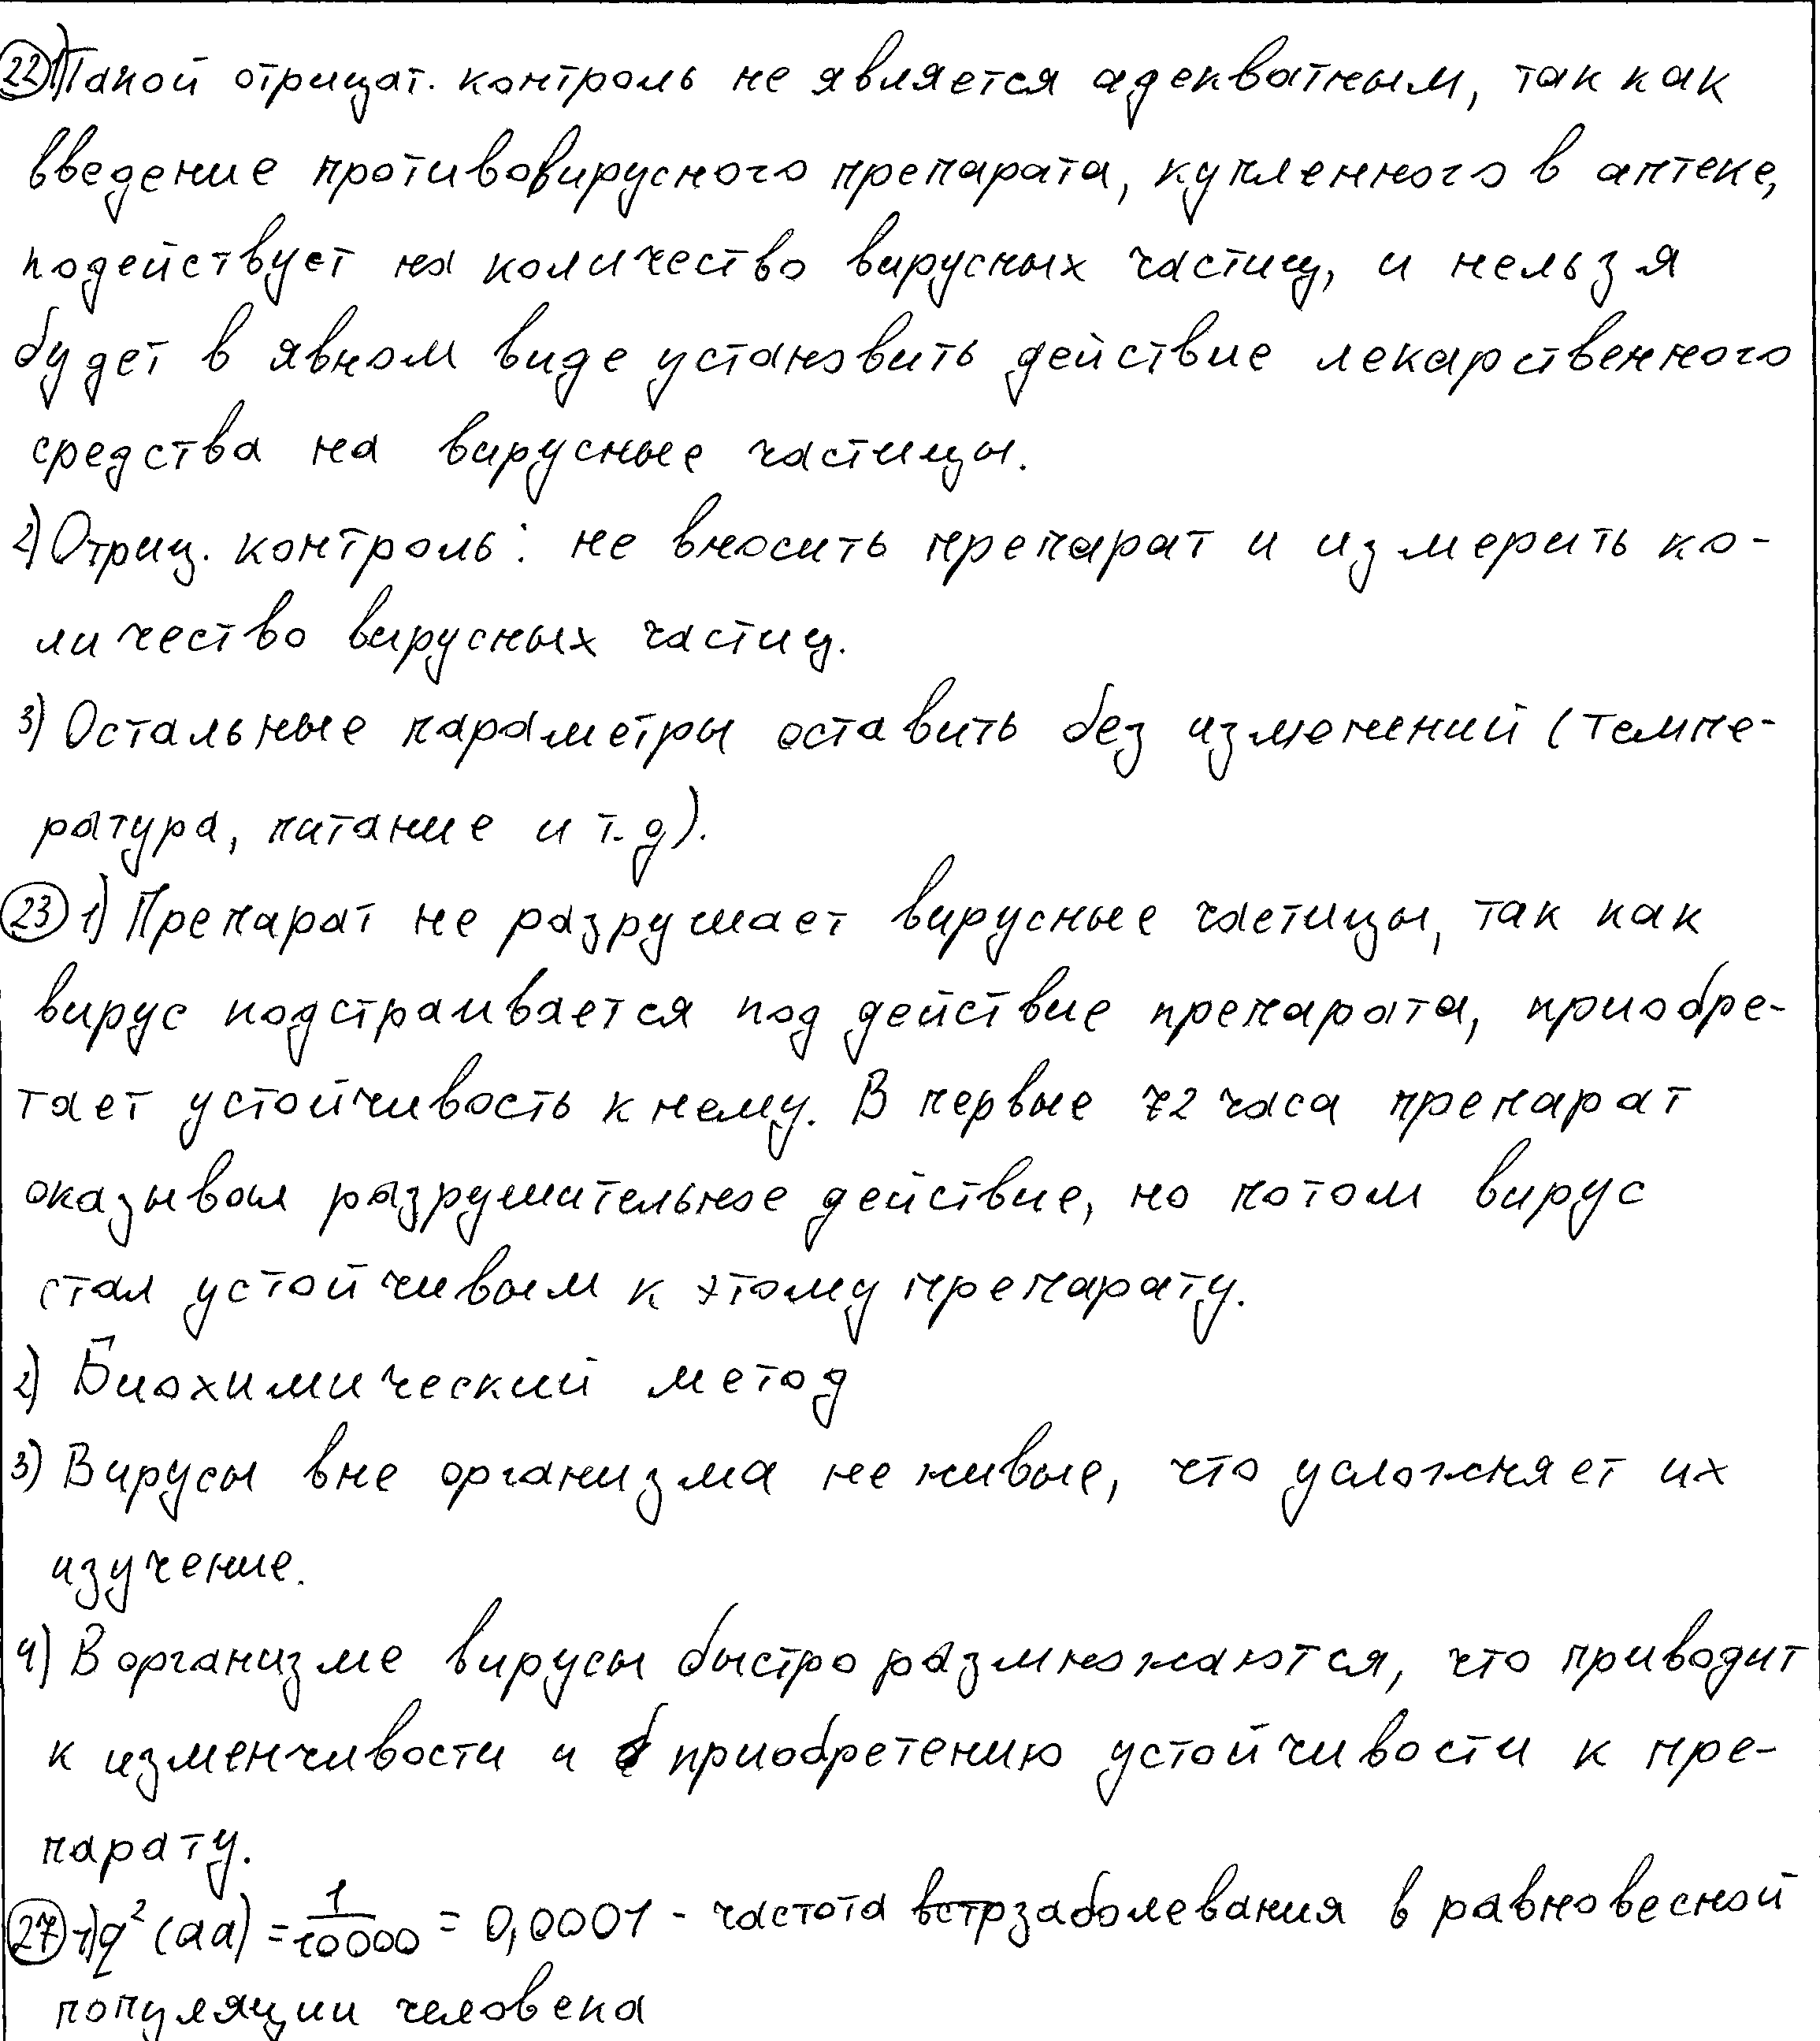 22 1) Такой отрицат. контроль не является адекватным, так как
введение противовирусного препарата, купленного в аптеке,
подействует на количество вирусных частиц, и нельзя
будет в явном виде установить действие лекарственного
средства на вирусные частицы.
2) Отриц. контроль: не вносить препарат и измерить ко-
личество вирусных частиц.
3) Остальные параметры оставить без изменений (темпе-
ратура, питание и т.д).
23 1) Препарат не разрушает вирусные частицы, так как
вирус подстраивается под действие препарата, приобре-
тает устойчивость к нему. В первые 72 часа препарат
оказывал разрушительное действие, но потом вирус
стал устойчивым к этому препарату.
2) Биохимический метод
3) Вирусы вне организма не живые, что усложняет их
изучение.
4) В организме вирусы быстро размножаются, что приводит
к изменчивости и приобретению устойчивости к пре-
парату.
27 1) q² (aa) = 1/10000 = 0,0001 - частота заболевания в равновесной
популяции человека